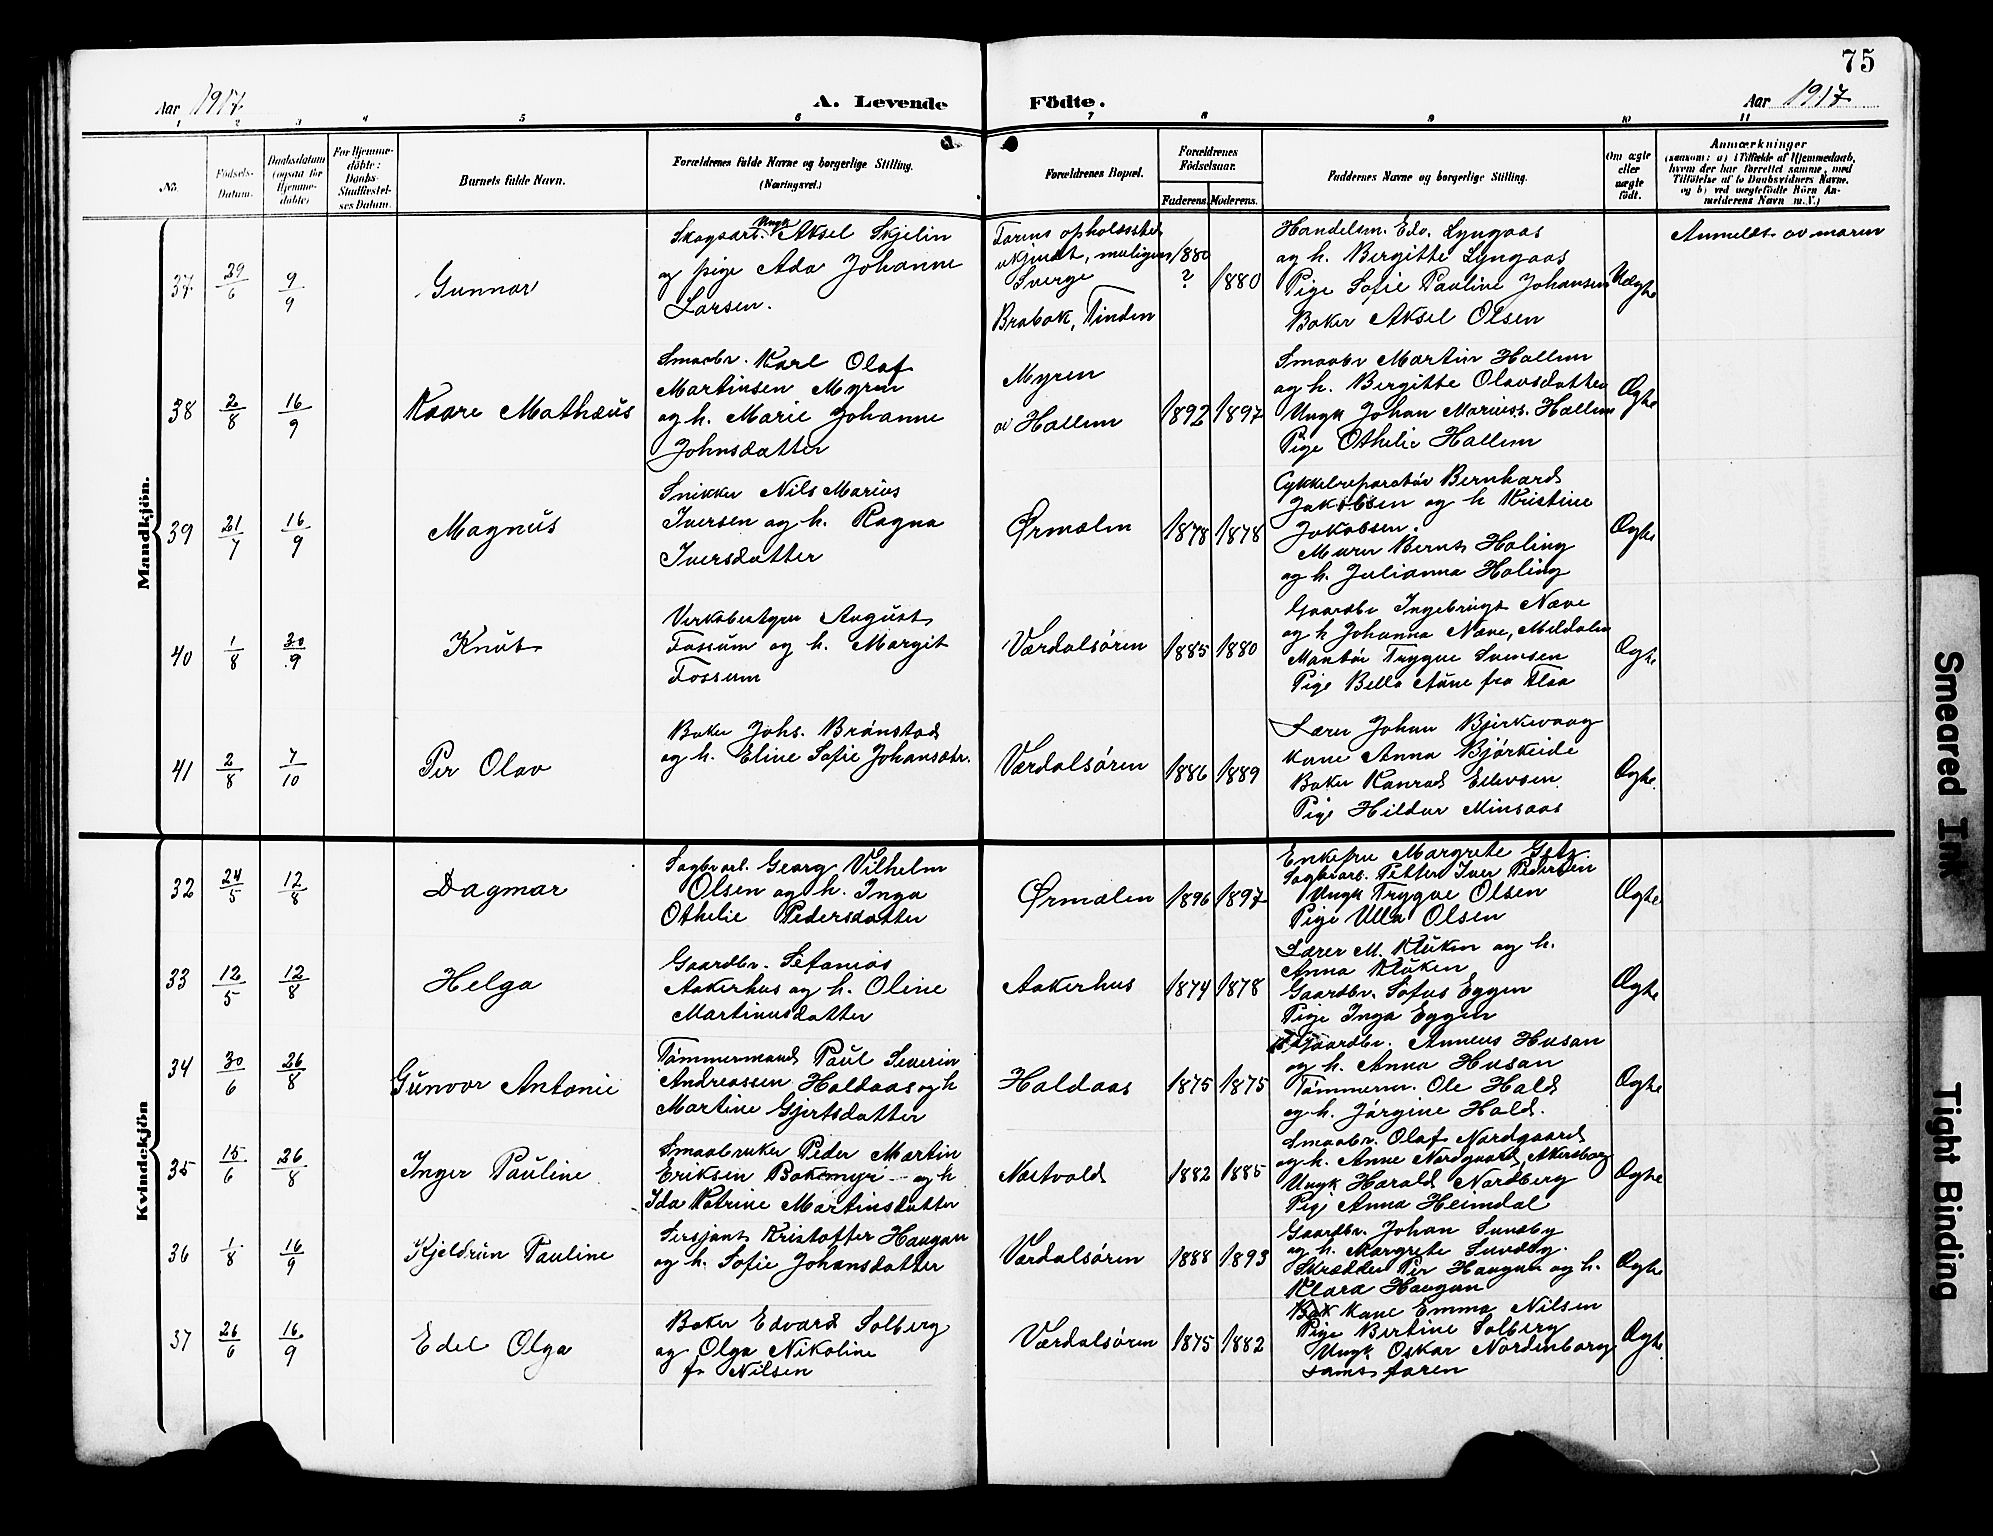 75
Aar 1917
A. Levende
Födte.
Aar 1917
1 2 3 4 5 6 7 8 9 10 11
No.
Födsels-
Datum.
Daabsdatum
(ogsaa for
Hjemme-
döbte)
For Hjemme-
döbte:
Daabs-
Stadfæstel-
ses Datum.
Barnets fulde Navn.
Forældrenes fulde Navne og borgerlige Stilling.
(Næringsvei.)
Forældrenes Bopæl.
Forældrenes
Födselsaar.
Faderens. Moderens.
Faddernes Navne og borgerlige Stilling.
Om ægte
eller
uægte
födt.
Anmærkninger
(saasom: a) i Tilfælde af Hjemmedaab,
hvem der har forrettet samme, med
Tilföielse af to Daabsvidners Navne,
og b) ved uægtefödte Börn An-
melderens Navn m. V.)
Mandkjön.
37
29/6
9/9
Gunnar
Skogsarb. Ungk Aksel Skjelin
og pige Ada Johanne
Larsen.
Farens opholdssted
ukjendt, muligens
Sverge
Brabak, Tinden
1880
?
1880
Handelsm. Edv. Lyngaas
og h. Birgitte Lyngaas
Pige Sofie Pauline Johansen
Baker Aksel Olsen
Uægte
Anmeldt av moren
38
2/8
16/9
Kaare Mathæus
Smaabr. Karl Olaf
Martinsen Myren
og h. Marie Johanne
Johnsdatter
Myren
av Hallem
1892 1897
Smaabr Martin Hallem
og h. Bergitte Olavsdatter
Ungk Johan Mariuss. Hallem
Pige Othelie Hallem
Ægte
39
21/7
16/9
Magnus
Snikker Nils Marius
Iversen og h. Ragna
Iversdatter
Ørmælen
1878 1878
Cykkelreparatør Bernhard
Jakobsen og h Kristine
Jakobsen.
Murer Bernt Holing
og h. Julianna Holing
Ægte
40
1/8
30/9
Knut
Verksbestyrer August
Fossum og h. Margit
Fossum
Værdalsøren
1885 1880
Gaardbr Ingebrigt Næve
og h Johanna Næve, Meldalen
Mantør Trygve Svensen
Pige Bella Aune fra Flaa
Ægte
41
2/8
7/10
Per Olav
Baker Johs. Brønstad
og h. Eline Sofie Johansdtr.
Værdalsøren
1886 1889
Lærer Johan Bjerkevaag
kone Anna Bjørkeide
Baker Konrad Ellevsen
Pige Hildur Minsaas
Ægte.
Kvindekjön
32
24/5
12/8
Dagmar
Sagbrarb. Georg Vilhelm
Olsen og h. Inga
Othelie Pedersdatter
Ørmælen
1896 1897
Enkefru Margrete Getz
Sagbrars. Petter Iver Pedersen
Ungk Trygve Olsen
Pige Ulla Olsen
Ægte
33
12/5
12/8
Helga
Gaardbr. Sefanias
Aakerhus og h. Oline
Martinusdatter
Aakerhus
1874 1878
Lærer M. Kluken og h.
Anna Kluken
Gaardbr. Sofus Eggen
Pige Inga Eggen
Ægte
34
30/6
26/8
Gunvor Antonie
Tømmermand Paul Severin
Andreassen Haldaas og h
Martine Gjertsdatter
Haldaas
1875 1875
Gaardbr. Anneus Husan
og h. Anna Husan
Tømmerm. Ole Hald
og h. Jørgine Hald.
Ægte
35
15/6
26/8
Inger Pauline
Smaabruker Peder Martin
Eriksen Bakemyr og h
Ida Katrine Martinsdatter
Nestvold
1882 1885
Smaabr. Olaf Nordgaard
og h. Anne Nordgaard, Akersborg
Ungk Harald Nordberg
Pige Anna Heimdal
Ægte
36
1/8
16/9
Kjeldrun Pauline
Sersjant Kristoffer Haugan
og h. Sofie Johansdatter
Værdalsøren
1888 1893
Gaardbr. Johan Sundby
og h. Margrete Sundby.
Skrædder Per Haugan og h.
Klara Haugan
Ægte
37
26/6
16/9
Edel Olga
Baker Edvard Solberg
og Olga Nikoline
f. Nilsen
Værdalsøren
1875 1882
Kone Emma Nilsen
Pige Bertine Solberg
Ungk Oskar Nordenborg
samt faren
Ægte
Smeared Ink
Tight Binding